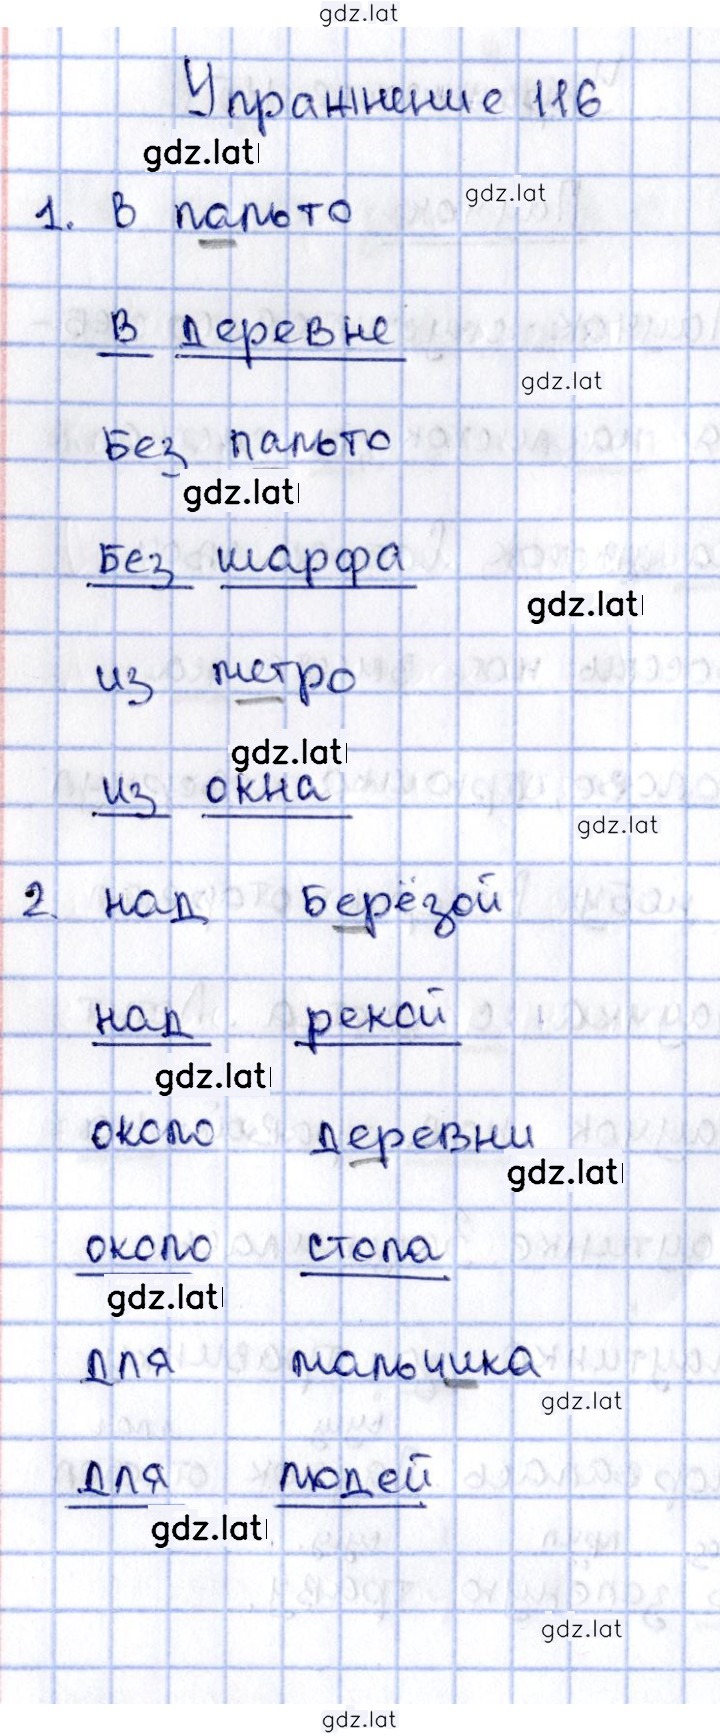 gdz.lat
Упражнение 116
gdz.lat
gdz.lat
1. в пальто
в деревне
gdz.lat
без пальто
gdz.lat
без шарфа
gdz.lat
из метро
gdz.lat
из окна
gdz.lat
2. над берёзой
над рекой
gdz.lat
около деревни
gdz.lat
около стола
gdz.lat
для мальчика
gdz.lat
для людей
gdz.lat
gdz.lat
gdz.lat